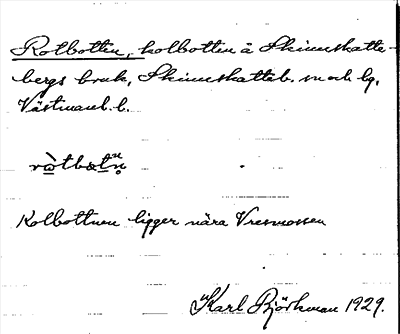 Rotbotten, kolbotten å Skinnskatte-
bergs bruk, Skinnskatteb. sn och bg,
Västmanl. l.
Kolbottnen ligger nära Vresmossen
Karl Björkman 1929.